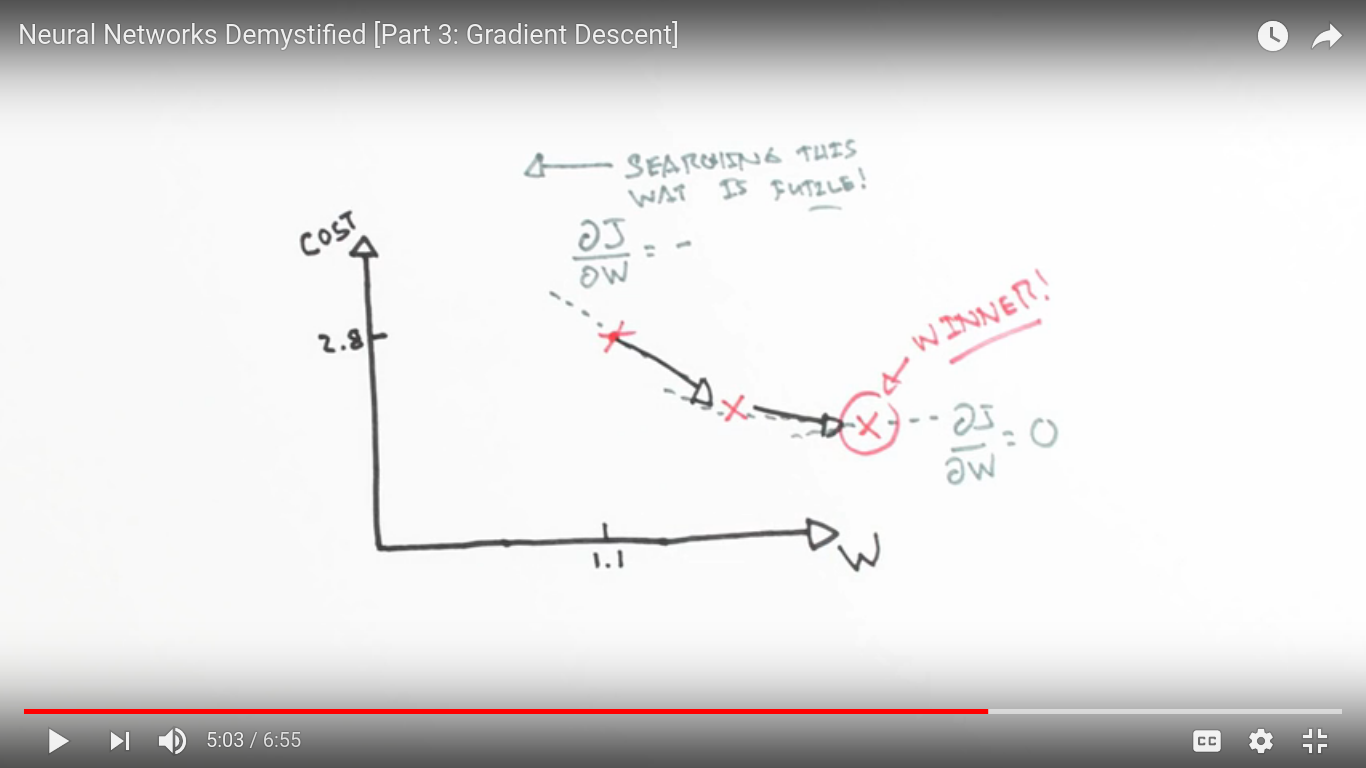 Neural Networks Demystified [Part 3: Gradient Descent]
SEARCHING THIS
WAY IS FUTILE!
∂J
∂W
= -
COST
2.8
WINNER!
∂J
∂W
= 0
1.1
W
5:03 / 6:55
CC